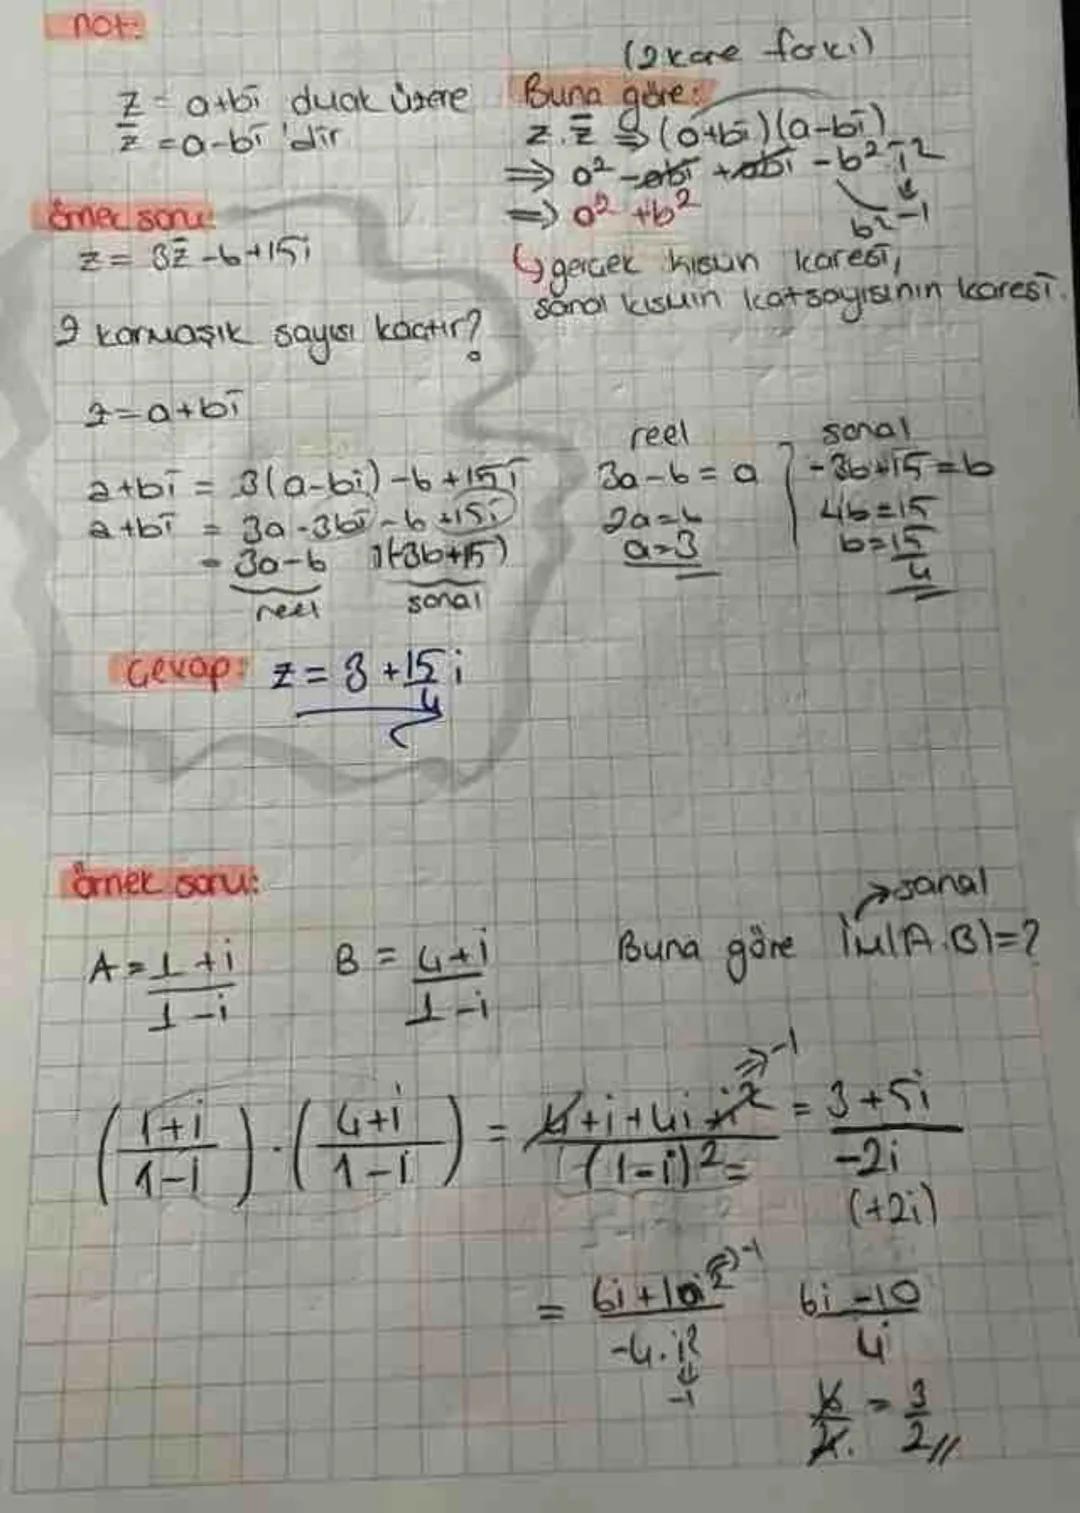 not:
z = a+bi duak üzere
z̅ = a-bi 'dir
(2 kare farkı)
Buna göre:
z.z̅ ⇒ (a+bi)(a-bi)
⇒ a² -abi +abi -b².i²
b² -1
⇒ a² +b²
↳ gerçek kısun karesi,
sanal kısmın katsayısının karesi.
örnek soru:
z = 3z̅ -6+15i
z karmaşık sayısı kaçtır?
z = a+bi
a+bi = 3(a-bi) -6 +15i
a+bi = 3a -3bi -6 +15i
= 3a-6 i(-3b+15)
reel sanal
reel
3a-6 = a
2a=6
a=3
sanal
-3b+15=b
4b=15
b=15/4
Cevap: z = 3 + 15/4 i
örnek soru:
A = 1+i / 1-i B = 4+i / 1-i Buna göre İm(A.B)=?
→sanal
(1+i / 1-i) . (4+i / 1-i) = 4+i+4i+i² / (1-i)² = 3+5i / -2i
⇒ -1
(+2i)
= 6i+10i² / -4.i² 6i-10 / 4
⇒ -1
-1
6/4 = 3/2 //